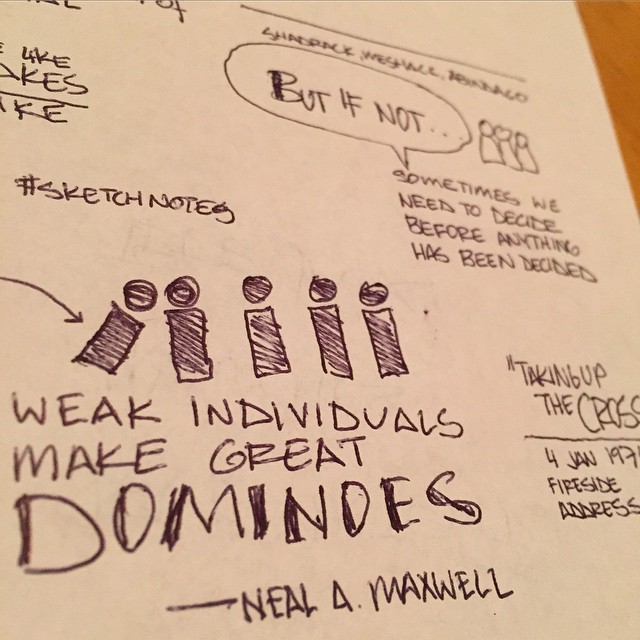 OF
LIKE
IKE
#SKETCHNOTES
SHADRACK, MESHACK, ABINDAGO
BUT IF NOT...
SOMETIMES WE
NEED TO DECIDE
BEFORE ANYTHING
HAS BEEN DECIDED
WEAK INDIVIDUALS
MAKE GREAT
DOMINOES
— NEAL A. MAXWELL
"TAKING UP
THE CROSS
4 JAN 197
FIRESIDE
ADDRESS